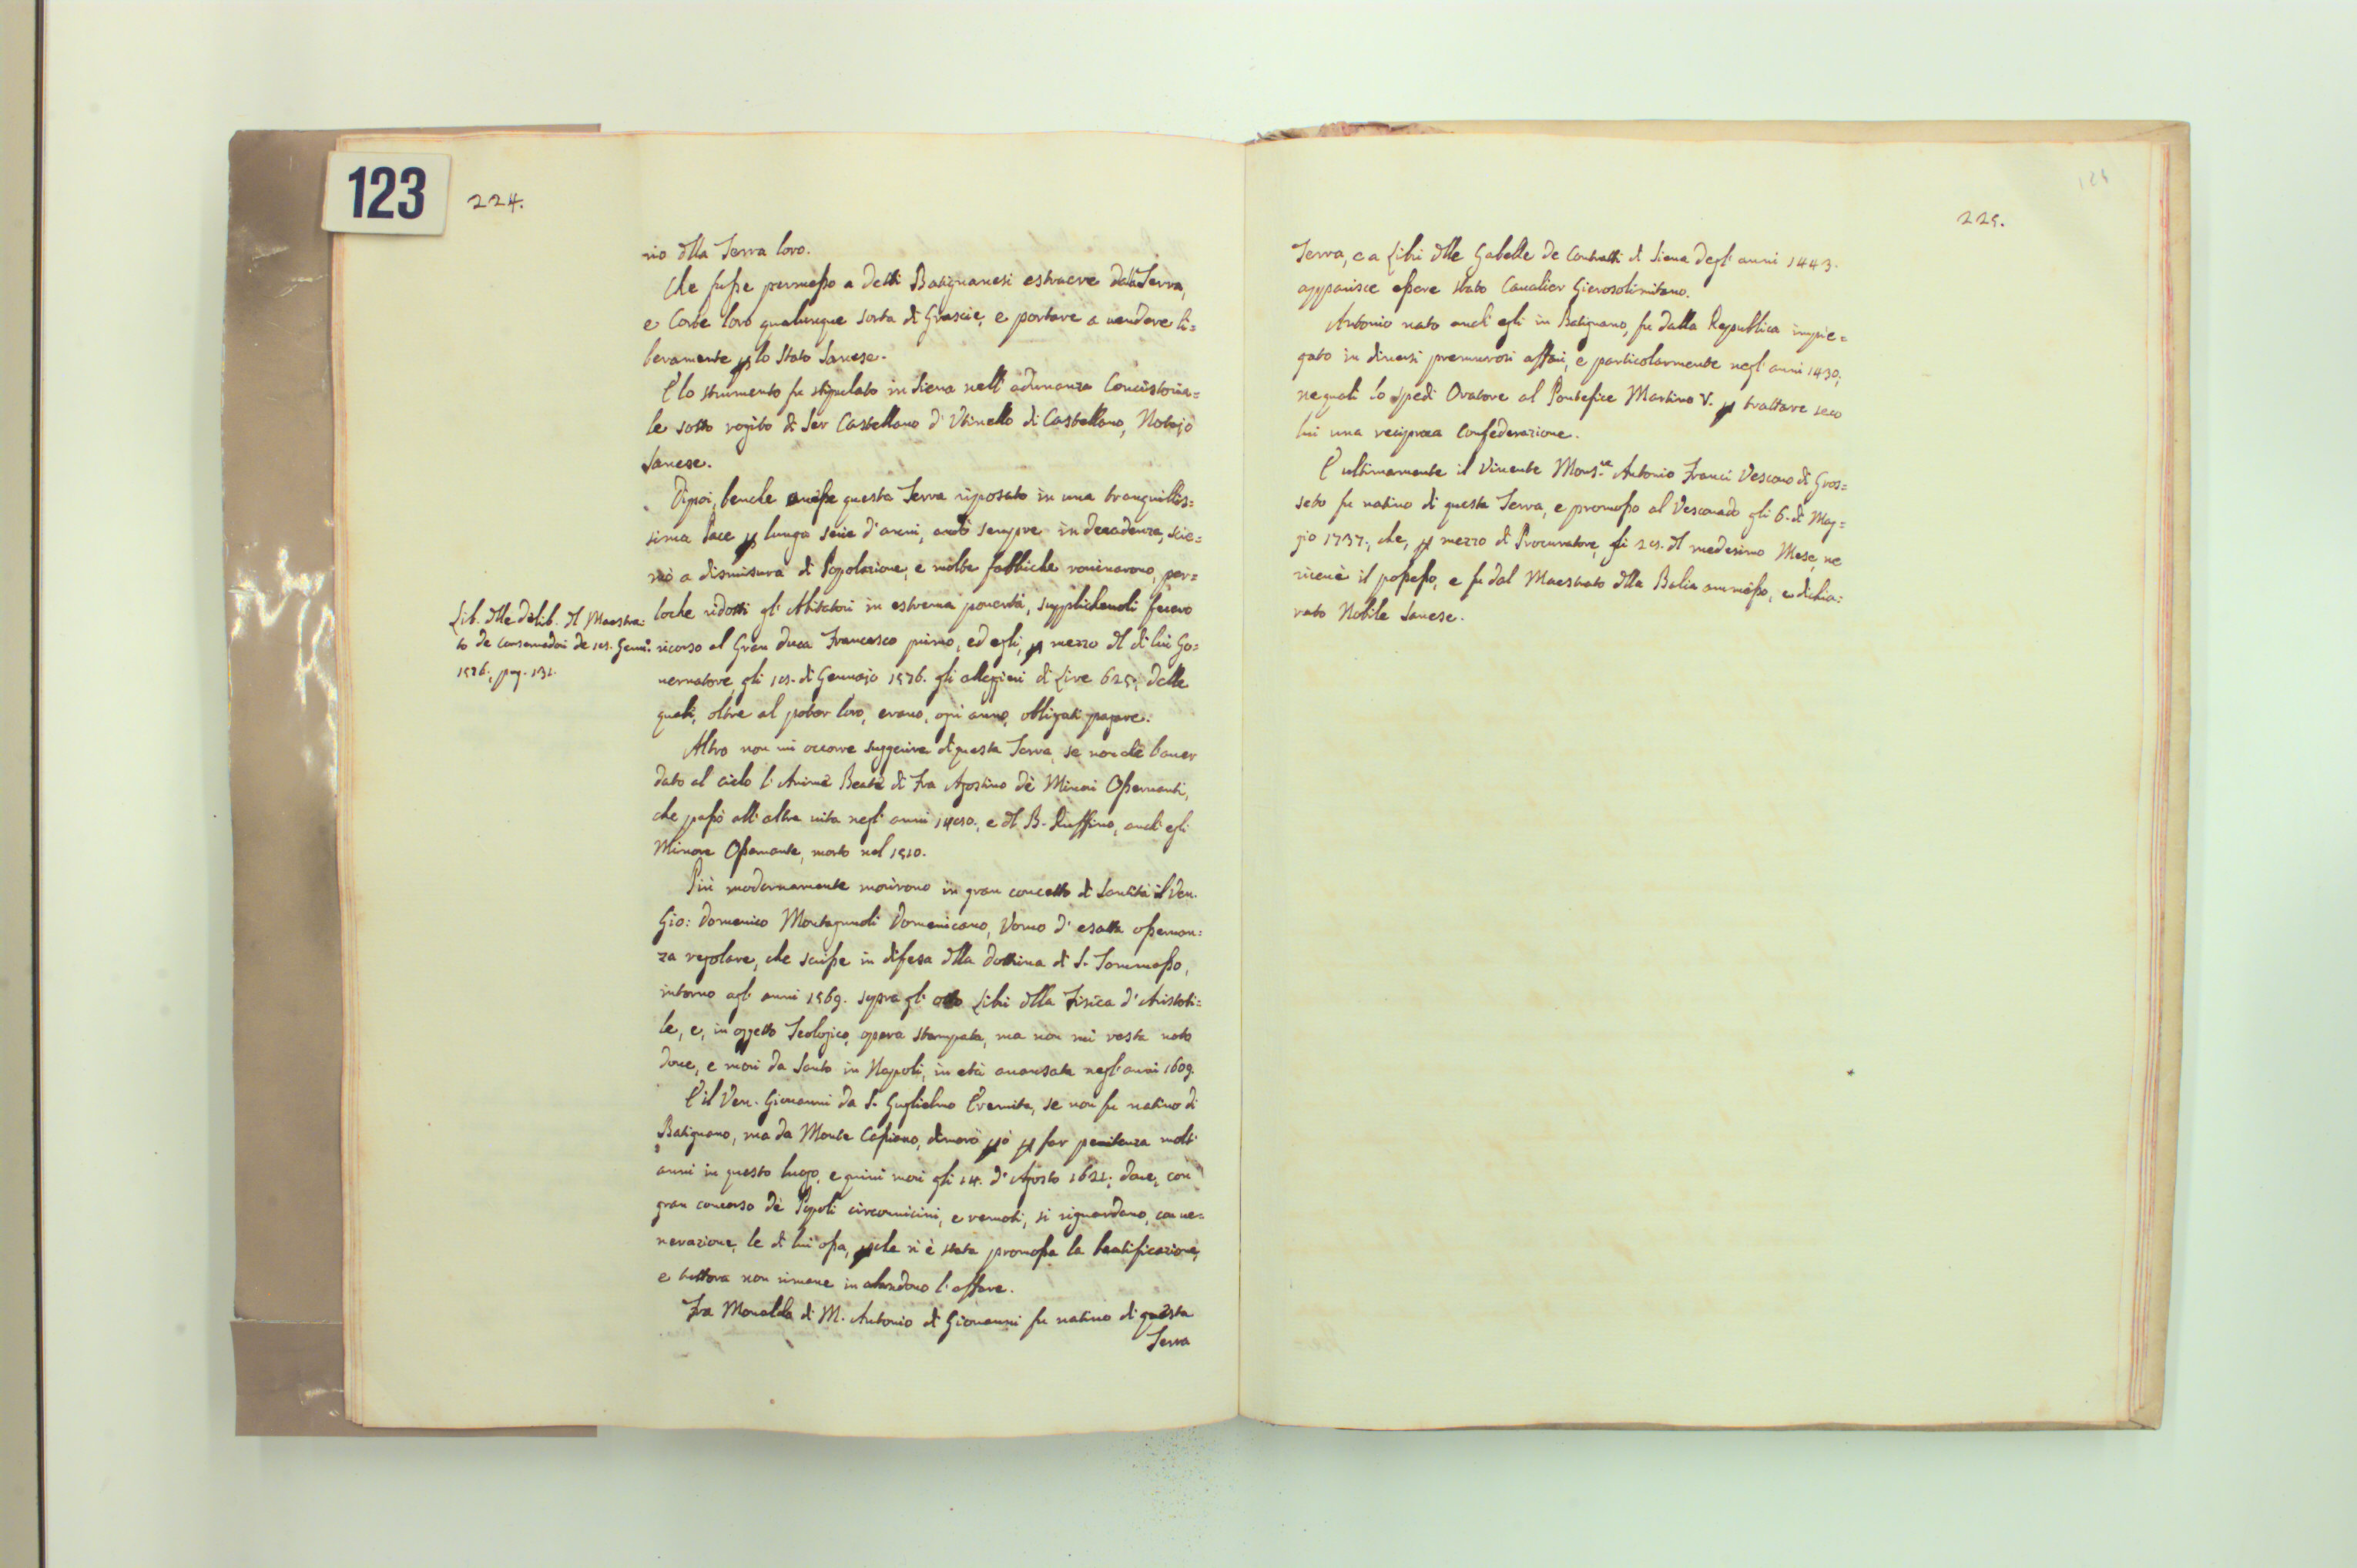 123
224.
rio dlla Terra loro.
Che fusse permesso a detti Batignanesi estraere dalla Terra,
e Corte loro qualunque sorta di Grascie, e portare a vendere li=
beramente p lo Stato Sanese.
E lo strumento fu stipulato in Siena nell' adunanza Concistoria=
le sotto rogito di Ser Castellano d' Utinello di Castellano, Notajo
Sanese.
Dipoi, benche avesse questa Terra riposato in una tranquillis=
sima Pace p lunga serie d' anni, andò sempre in decadenza, sce=
mò a dismisura di Popolazione, e molte fabbriche rovinarono, per=
loche ridotti gl' Abitatori in estrema povertà, supplichevoli fecero
ricorso al Gran Duca Francesco primo, ed egli, p mezzo dl di lui Go=
vernatore, gli 15. di Gennajo 1576. gli alleggierì di Lire 625; delle
quali, oltre al poter loro, erano, ogni anno, obligati pagare.
Lib. dlle delib. dl Maestra=
to de Conservadori de 15. Genn:o
1576., pag. 131.
Altro non mi occorre suggerire di questa Terra, se non che l'aver
dato al cielo l' Anime Beate di Fra Agostino dè Minori Osservanti,
che passò all' altra vita negl' anni 1450., e dl B. Ruffino, anch' egli
Minore Osservante, morto nel 1510.
Più modernamente morirono in gran concetto di Santità il Ven.
Gio: Domenico Montagnuoli Domenicano, Uomo d' esatta osservan=
za regolare, che scrisse in difesa dlla dottrina di S. Tommasso,
intorno agl' anni 1569. sopra gl' otto Libri dlla Fisica d' Aristoti=
le, e, in oggetto Teologico, opera stampata, ma non mi resta noto
dove, e morì da Santo in Napoli, in età avanzata negl' anni 1609.
E il Ven. Giovanni da S. Guglielmo Eremita, se non fu nativo di
Batignano, ma da Monte Cassiano, dimorò pò p far penitenza molti
anni in questo luogo, e quivi morì gli 14. d' Agosto 1621; dove, con
gran concorso dè Popoli circonvicini, e remoti, si riguardano, con ve=
nerazione, le di lui ossa, pche si è stata promossa la beatificazione,
e tuttora non rimane in abandono l' affare.
Fra Monaldo di M. Antonio di Giovanni fu nativo di questa
Terra
124
225.
Terra, e a Libri dlle Gabelle de Contratti di Siena degl' anni 1443.
apparisce essere stato Cavalier Gierosolimitano.
Antonio nato anch' egli in Batignano, fu dalla Republica impie=
gato in diversi premurosi affari, e particolarmente negl' anni 1430;
ne quali lo spedì Oratore al Pontefice Martino V. p trattare seco
lui una reciproca Confederazione.
E ultimamente il Vivente Mons.re Antonio Franci Vescovo di Gros=
seto fu nativo di questa Terra, e promosso al Vescovado gli 6. di Mag=
gio 1737., che, p mezzo di Procuratore, li 25. dl medesimo Mese, ne
ricevè il possesso, e fu dal Maestrato dlla Balia ammesso, e dichia=
rato Nobile Sanese.